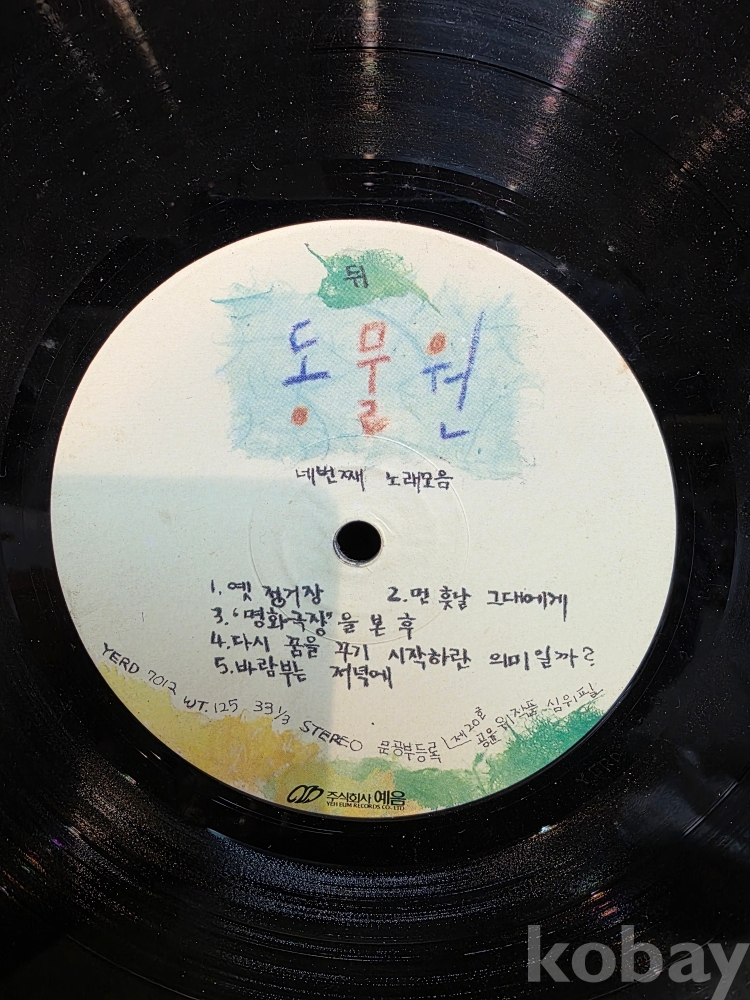 뒤
동물원
네번째 노래모음
1. 옛 정거장 2. 먼 훗날 그대에게
3. "명화극장"을 본 후
4. 다시 꿈을 꾸기 시작하란 의미일까?
5. 바람부는 저녁에
YERD 7012 WT. 125 33 1/3 STEREO 문공부등록 제20호
공윤위작품 심위필
주식회사 예음
YEH EUM RECORDS CO. LTD
kobay